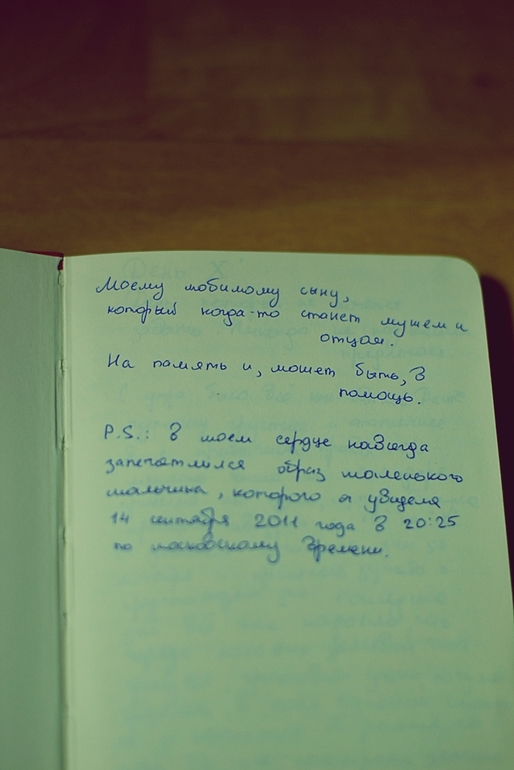 Моему любимому сыну,
который когда-то станет мужем и
отцом.
На память и, может быть, в
помощь.
P.S.: в моем сердце навсегда
запечатлился образ маленького
мальчика, которого я увидела
14 сентября 2011 года в 20:25
по московскому времени.